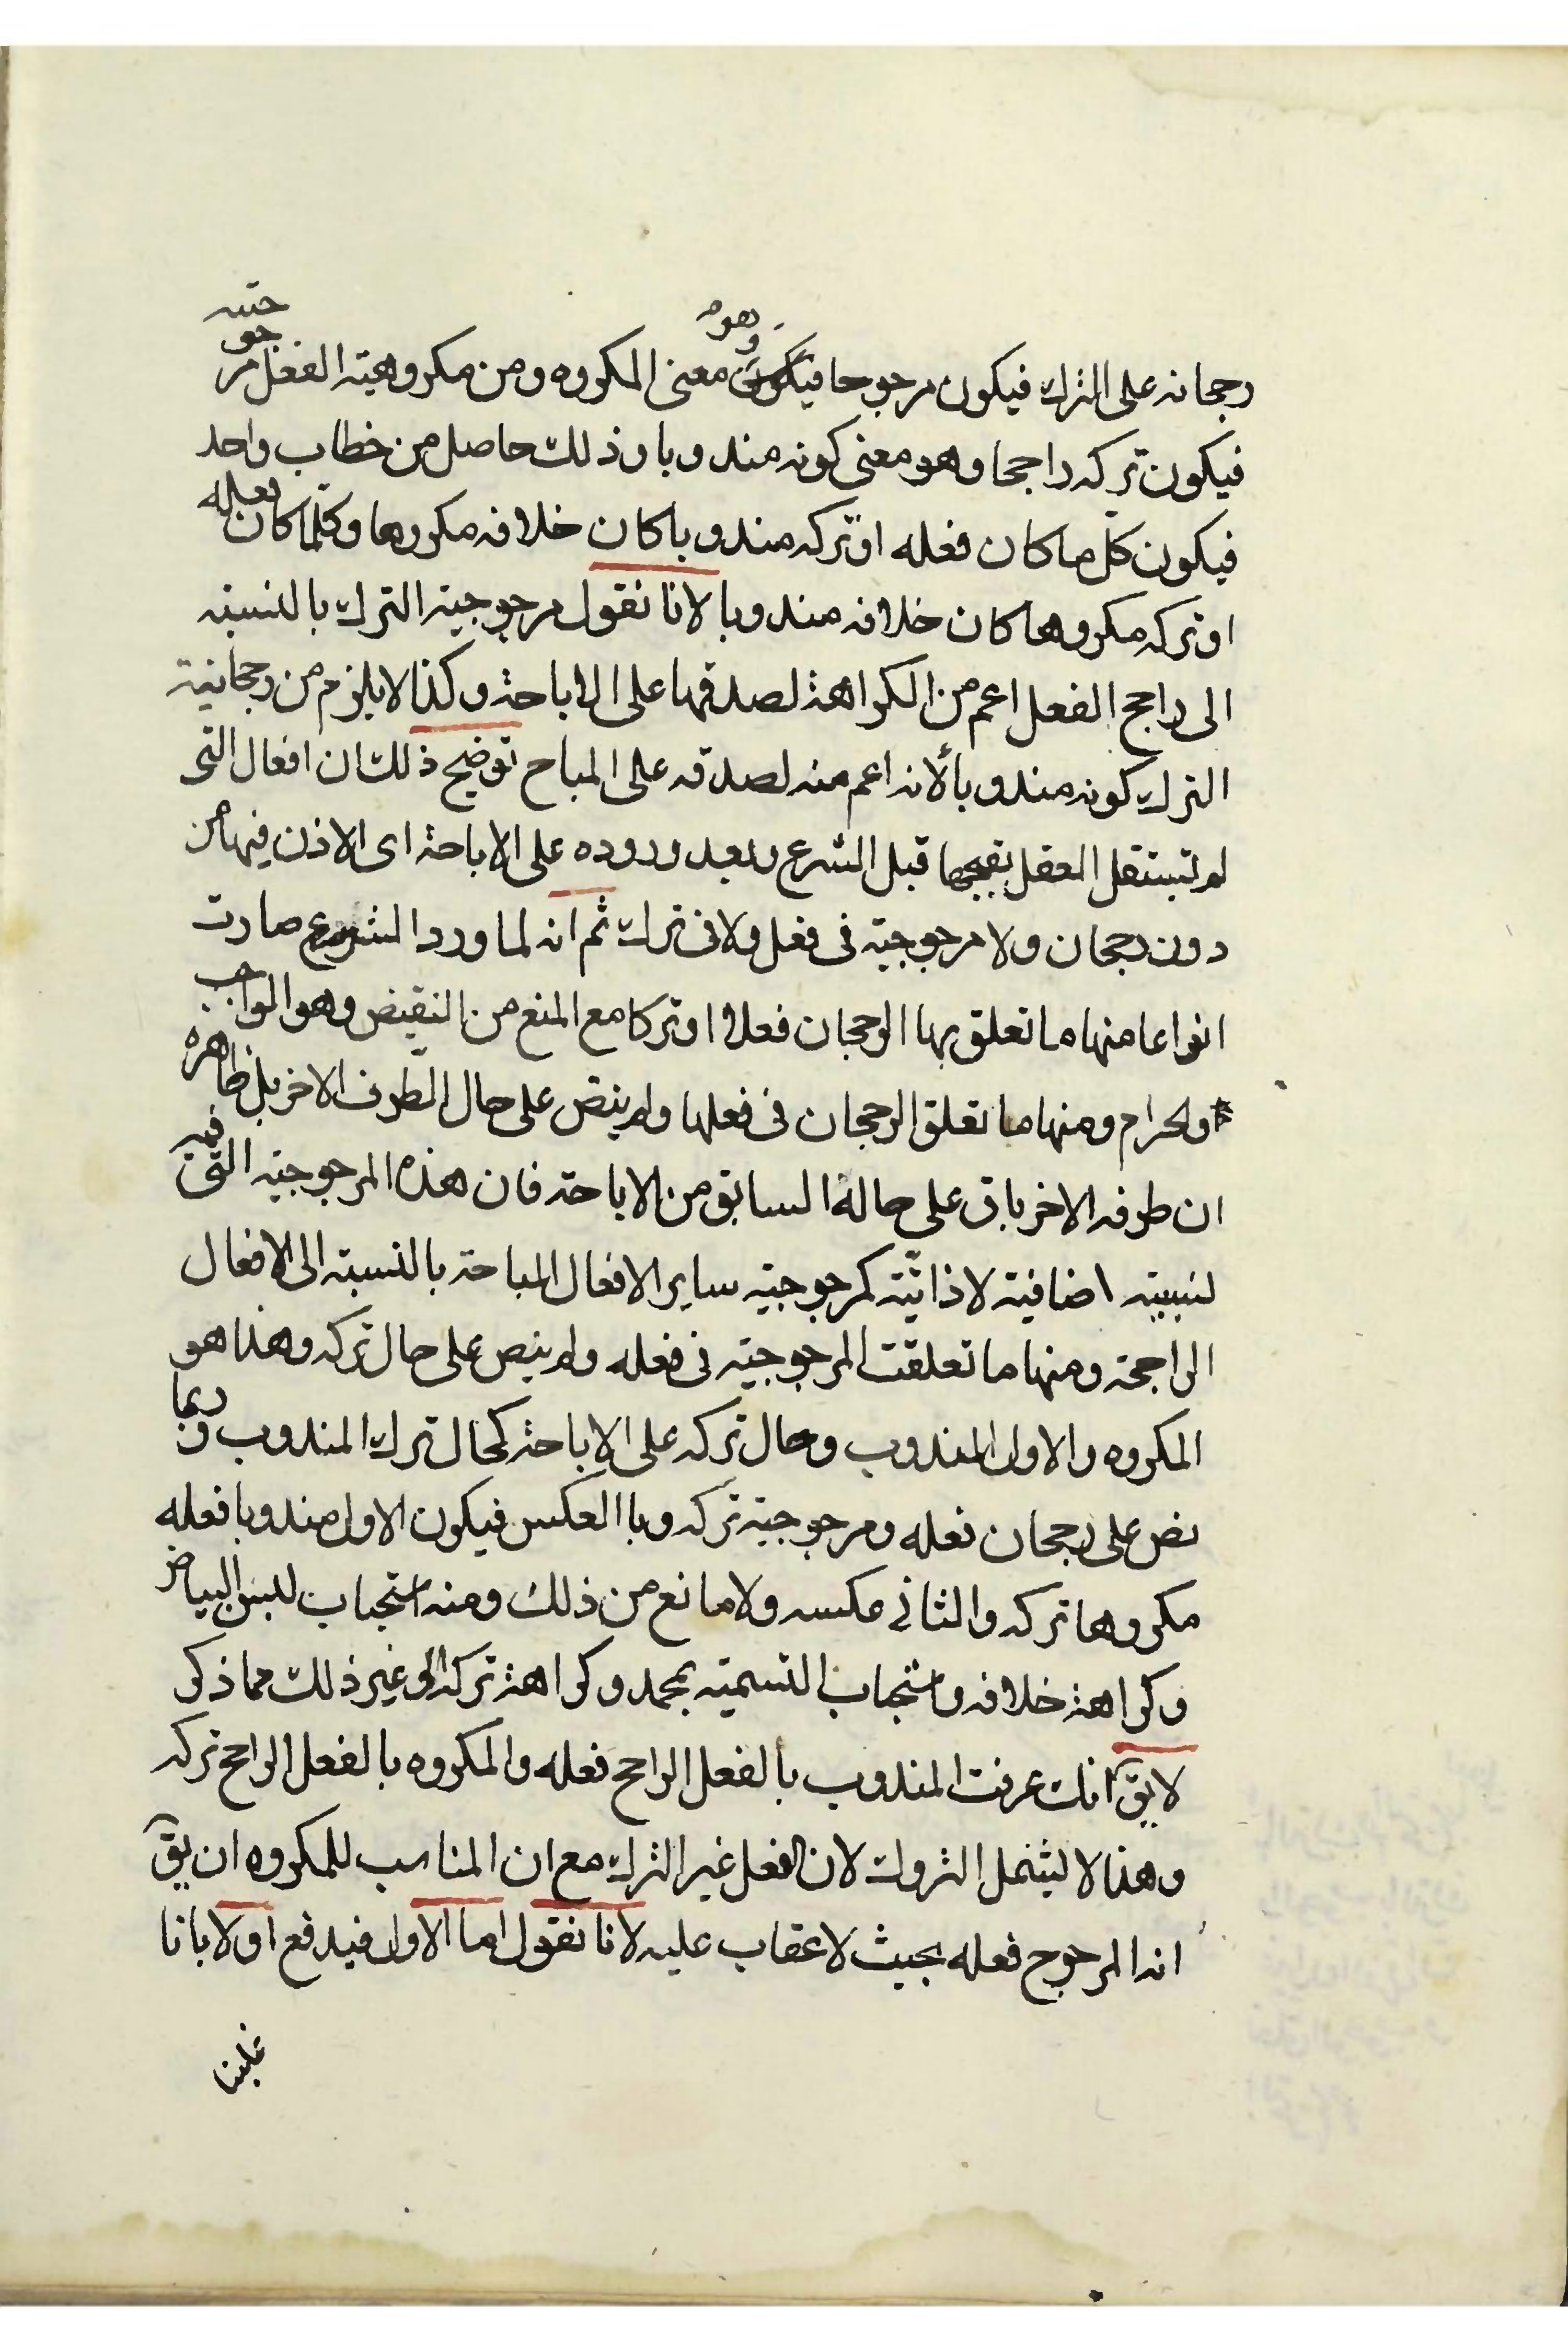 رجحانه على الترك فيكون مرجوحا فيكون وهو معنى المكروه ومن مكروهية الفعل مرجوحيته
فيكون تركه راجحا وهو معنى كونه مندوبا وذلك حاصل من خطاب واحد
فيكون كل ما كان فعله او تركه مندوبا كان خلافه مكروها وكلما كان فعله
او تركه مكروها كان خلافه مندوبا لانا نقول مرجوجية الترك بالنسبة
الى راجح الفعل اعم من الكراهة لصدقها على الاباحة وكذا لا يلزم من رجحانية
الترك كونه مندوبا لانه اعم منه لصدقه على المباح توضيح ذلك ان افعال التى
لم تستقل العقل بقبحها قبل الشرع وبعد وروده على الاباحة اى الاذن فيها من
دون رجحان ولا مرجوجية فى فعل ولا فى ترك ثم انه لما ورد الشرع صارت
انواعا منها ما تعلق بها الرجحان فعلا او تركا مع المنع من النقيض وهو الواجب
والحرام ومنها ما تعلق الرجحان فى فعلها ولم ينص على حال الطرف الاخر بل ظاهره
ان طرفه الاخر باق على حالة السابق من الاباحة فان هذه المرجوجية التى فيه
نسبية اضافية لا ذاتية كمرجوجية ساير الافعال المباحة بالنسبة الى الافعال
الراجحة ومنها ما تعلقت المرجوجية فى فعله ولم ينص على حال تركه وهذا هو
المكروه والاول المندوب وحال تركه على الاباحة كحال ترك المندوب وربما
نص على رجحان فعله ومرجوجية تركه وبا العكس فيكون الاول مندوبا فعله
مكروها تركه والثانى عكسه ولا مانع من ذلك ومنه استحباب لبس البياض
وكراهة خلافه واستحباب التسمية بمحمد وكراهة تركه الى غير ذلك مما ذكر
لا يق انك عرفت المندوب بالفعل الراجح فعله والمكروه بالفعل الراجح تركه
وهذا لا يشمل التروك لان الفعل غير الترك مع ان المناسب للمكروه ان يق
انه المرجوح فعله بحيث لا عقاب عليه لانا نقول اما الاول فيدفع اولا بانا